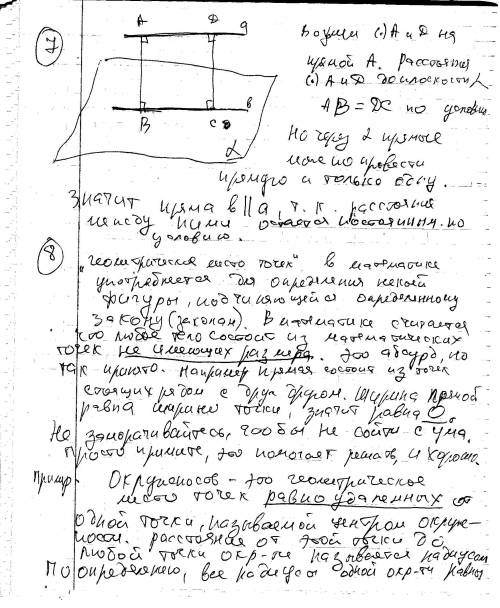 7
A D a
B C в
α
Возьми (.) A и D на
прямой А. Расстояния
(.) A и D до плоскости α
AB = DC по условию.
Но через 2 прямые
можно провести
прямую и только одну.
Значит пряма в || a, т.к. расстояние
между ними остается постоянным по
условию.
8
"геометрическое место точек" в математике
употребляется для определения некой
фигуры, подчиняющейся определенному
закону (законам). В математике считается
что любое тело состоит из математических
точек не имеющих размера. Это абсурд, но
так принято. Например прямая состоит из точек
стоящих рядом с друг другом. Ширина прямой
равна ширине точки, значит равна 0.
Не заморачивайтесь, чтобы не сойти с ума.
Просто примите, это помогает решать, и хорошо.
Пример. Окружность - это геометрическое
место точек равноудаленных от
одной точки, называемой центром окруж-
ности. расстояние от этой точки до
любой точки окр-ти называется радиусом
По определению, все радиусы одной окр-ти равны